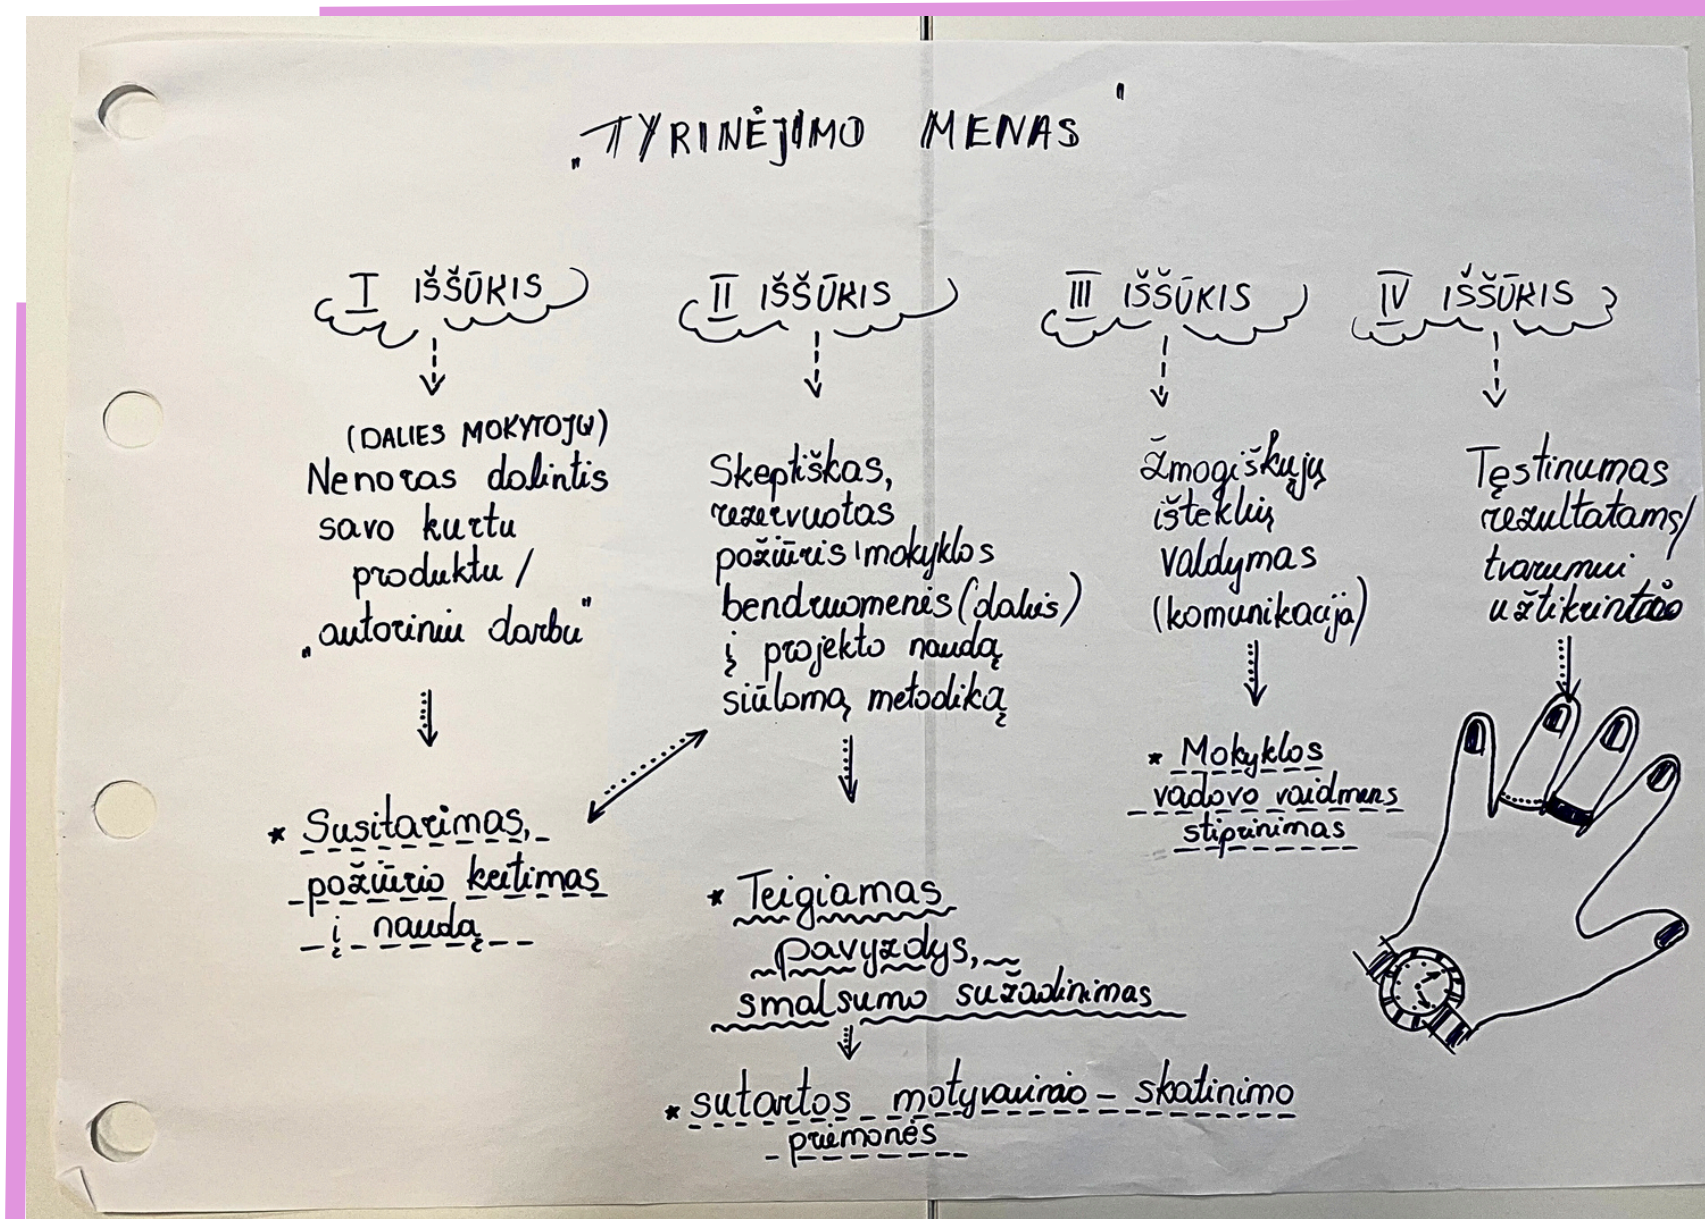 „TYRINĖJIMO MENAS"
I IŠŠŪKIS
(DALIES MOKYTOJŲ)
Nenoras dalintis
savo kurtu
produktu /
„autoriniu darbu"
* Susitarimas,
požiūrio keitimas
į naudą
II IŠŠŪKIS
Skeptiškas,
rezervuotas
požiūris mokyklos
bendruomenės (dalies)
į projekto naudą
siūlomą metodiką
* Teigiamas
pavyzdys,
smalsumo sužadinimas
* sutartos motyvavimo - skatinimo
priemonės
III IŠŠŪKIS
žmogiškųjų
išteklių
valdymas
(komunikacija)
* Mokyklos
vadovo vaidmens
stiprinimas
IV IŠŠŪKIS
Tęstinumas
rezultatams/
tvarumui